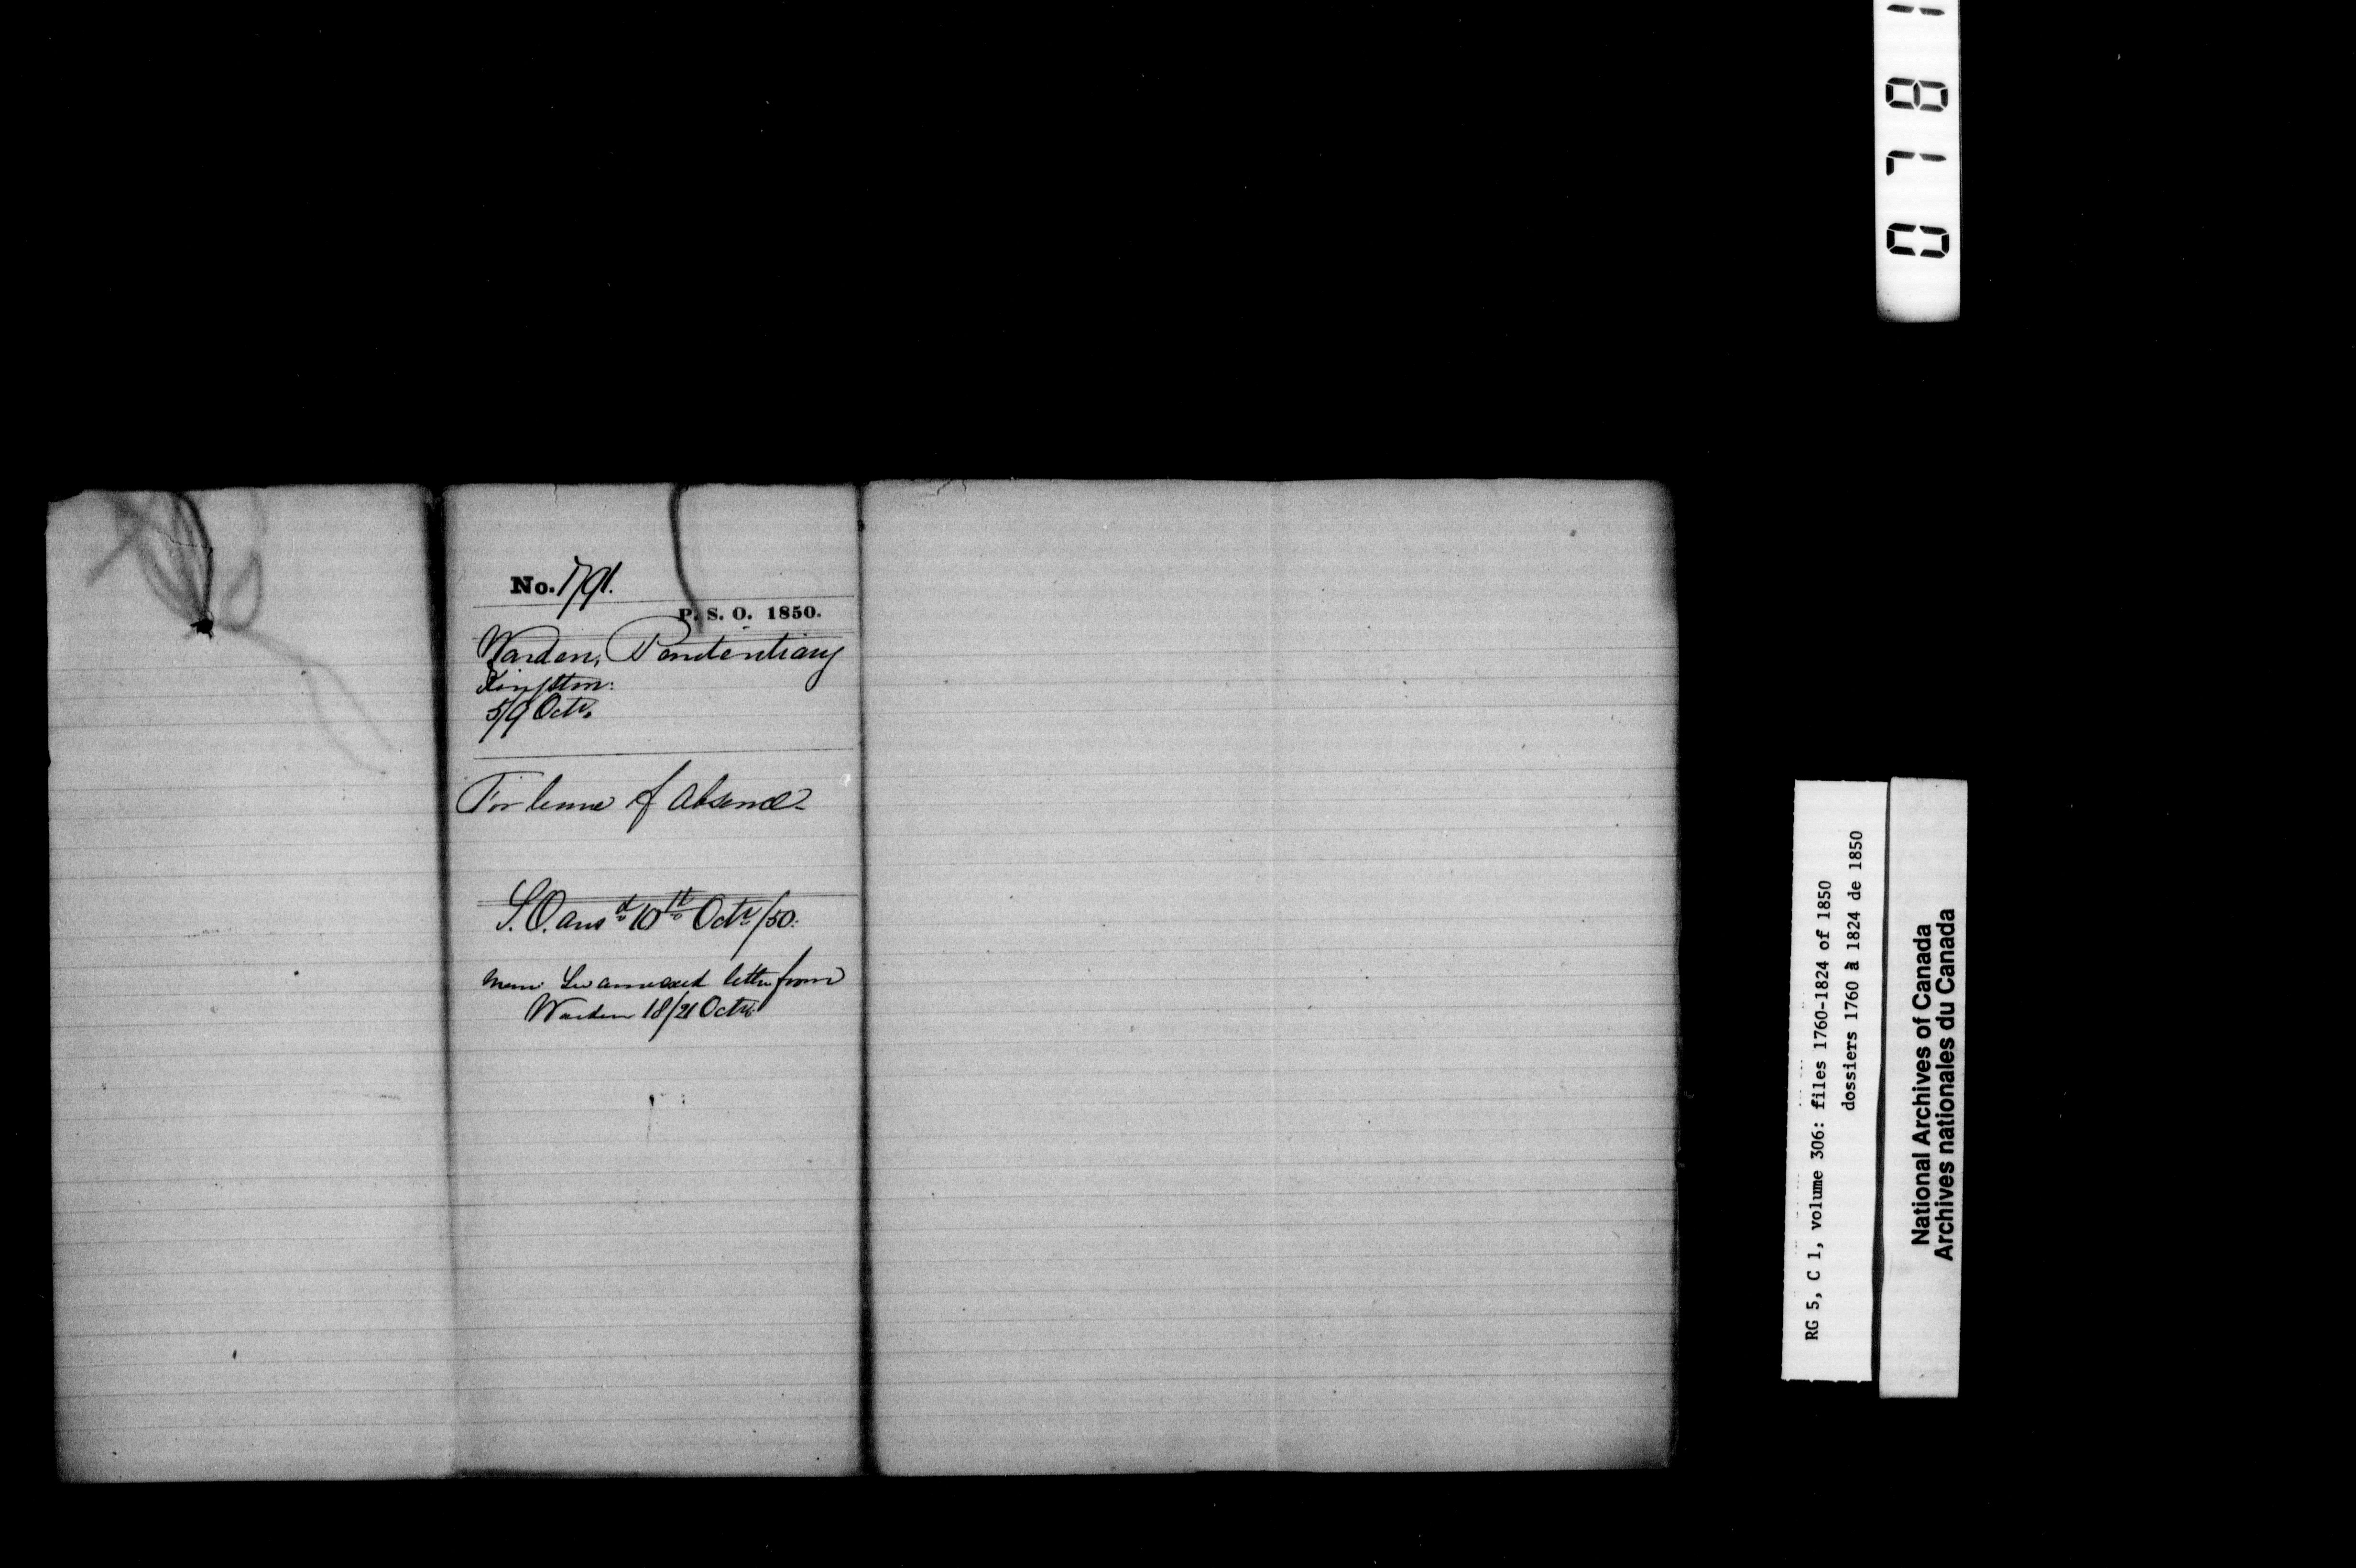 No. 1791.
P. S. O. 1850.
Warden, Penitentiary
Kingston:
5/9 Octr.
For leave of absence
S.O. ansd 10th Octr/50.
Mem: See annexed letter from
Warden 18/21 Octr.
0781
RG 5, C 1, volume 306: files 1760-1824 of 1850
dossiers 1760 à 1824 de 1850
National Archives of Canada
Archives nationales du Canada